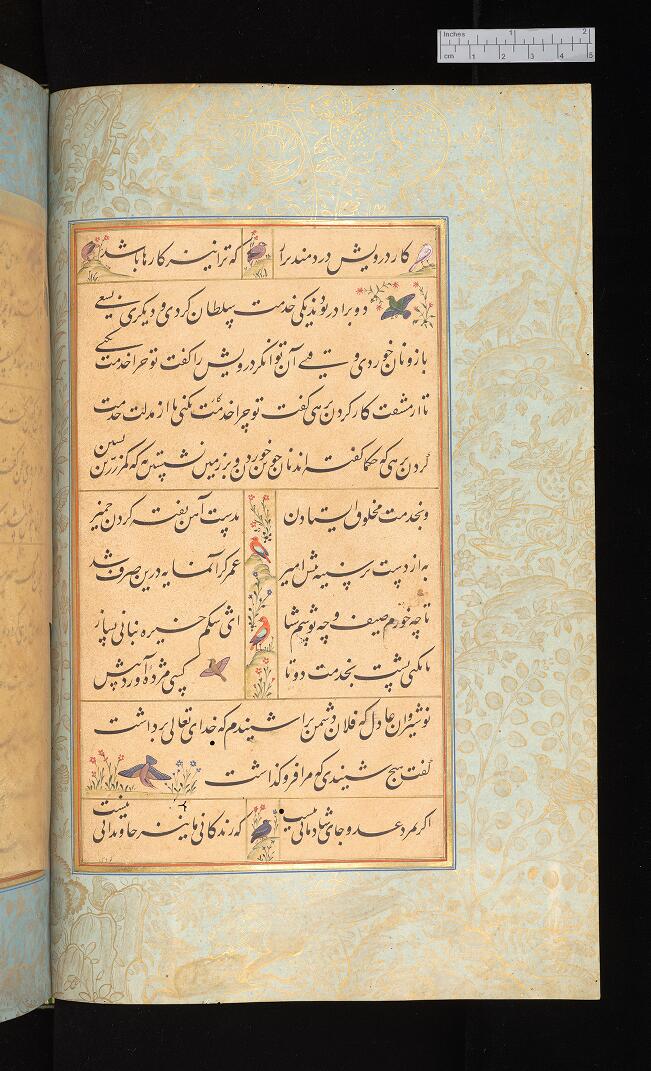 Inches 1 2
cm 1 2 3 4 5
کار درویش دردمند برآر که ترا نیز کارها باشد
دو برادر بودند یکی خدمت سلطان کردی و دیگری بسعی
بازو نان خوردی وقتی آن توانگر درویش را گفت تو چرا خدمت نکنی
تا از مشقت کار کردن برهی گفت تو چرا کار نکنی تا از مذلت خدمت
کردن برهی که حکما گفته اند نان جو خوردن و بر زمین نشستن به که کمر زرین بستن
و بخدمت مخلوق ایستادن بدست آهن تفته کردن خمیر
به از دست بر سینه پیش امیر عمر گرانمایه درین صرف شد
تا چه خورم صیف و چه پوشم شتا ای شکم خیره بنانی بساز
تا نکنی پشت بخدمت دو تا کسی مژده آورد پیش
نوشیروان عادل که فلان دشمن را شنیدم که خدای تعالی برداشت
گفت هیچ شنیدی که مرا فرو گذاشت
اگر بمرد عدو جای شادمانی نیست که زندگانی ما نیز جاودانی نیست